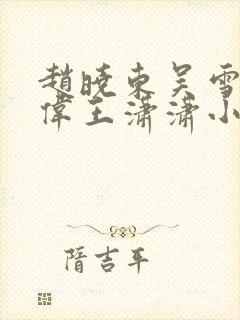 趙曉東吴雪
偉王潇潇小
隋吉平